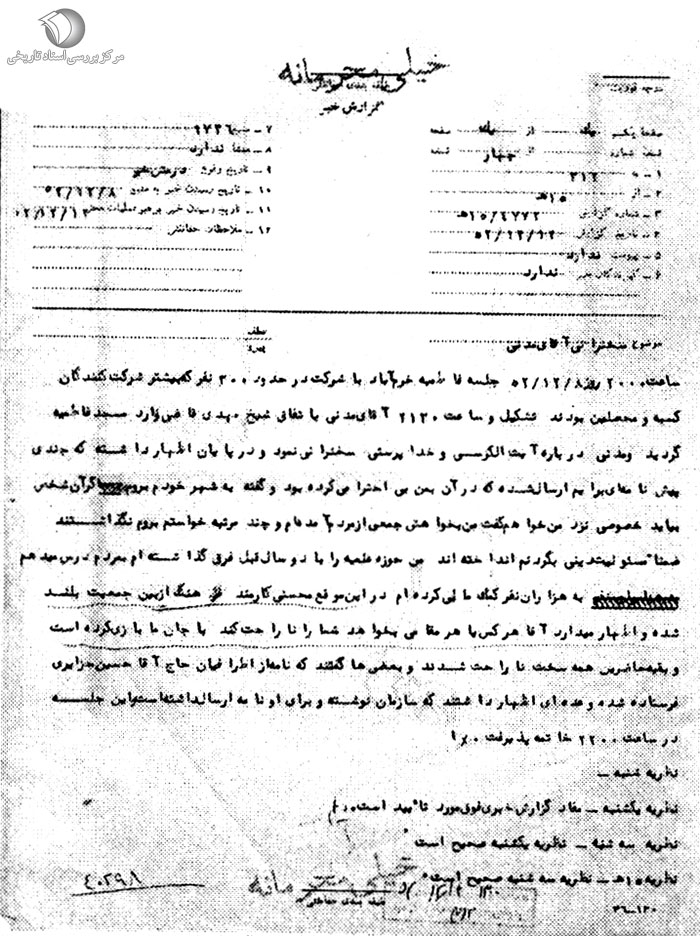 مرکز بررسی اسناد تاریخی
خیلی محرمانه
طبقه بندی حفاظتی
گزارش خبر
درجه فوریت
صفحه یکم از یک صفحه
نسخه شماره از چهار نسخه
۱ - به ۳۱۲
۲ - از ۱۵ه
۳ - شماره گزارش ۱۵/۶۷۷۲ه
۴ - تاریخ گزارش ۵۲/۱۲/۱۲
۵ - پیوست ندارد
۶ - گیرندگان خبر ندارد
۷ - منبع ۹۷۳۶
۸ - منشأ ندارد
۹ - تاریخ وقوع در متن خبر
۱۰ - تاریخ رسیدن خبر به منبع ۵۲/۱۲/۸
۱۱ - تاریخ رسیدن خبر برهبر عملیات محلی
۱۲ - ملاحظات حفاظتی
موضوع سخنرانی آقای مدنی
عطف
پیرو
ساعت ۲۰۰۰ روز ۵۲/۱۲/۸ جلسه فاطمیه خرم آباد با شرکت در حدود ۳۰۰ نفر که بیشتر شرکت کنندگان
کسبه و محصلین بودند تشکیل و ساعت ۲۱۳۰ آقای مدنی با تفاق شیخ مهدی قاضی وارد مسجد فاطمیه
گردید ومدنی درباره آیت الکرسی و خدا پرستی سخنرانی نمود و درپایان اظهار داشته که چندی
پیش نامه ای برایم ارسال شده که در آن بمن بی احترامی کرده بود و گفته به شهر خودم بروم اگر آن شخص
بیاید خصوصی نزد من خواهم گفت من بخواهش جمعی از مردم آمده ام و چند مرتبه خواستم بروم نگذاشتند
ضمناً مسئولیت دینی بگردنم انداخته اند من حوزه علمیه را با دو سال قبل فرق گذاشته ام بمردم درس میدهم
به هزاران نفر کمک مالی کرده ام در این موقع محسنی کارمند فرهنگ ازبین جمعیت بلند
شده و اظهار میدارد آقا هرکس یا هر مقامی بخواهد شما را ناراحت کند با جان ما بازی کرده است
و بقیه حاضرین همه سخت ناراحت شدند و بعضی ها گفتند که نامه از اطرافیان حاج آقا حسین جزایری
فرستاده شده وعده ای اظهار داشتند که سازمان نوشته و برای او نامه ارسال داشته است واین جلسه
در ساعت ۲۲۰۰ خاتمه پذیرفت
نظریه شنبه -
نظریه یکشنبه - مفاد گزارش خبری فوق مورد تایید است
نظریه سه شنبه - نظریه یکشنبه صحیح است
نظریه ۱۵ه - نظریه سه شنبه صحیح است
خیلی محرمانه
طبقه بندی حفاظتی
۴۰۲۹۸
۳۶-۱۳۰